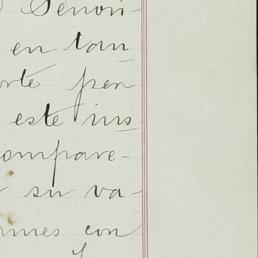 Señori-
en tan
orte per
este ins
compare-
su va-
rmes con